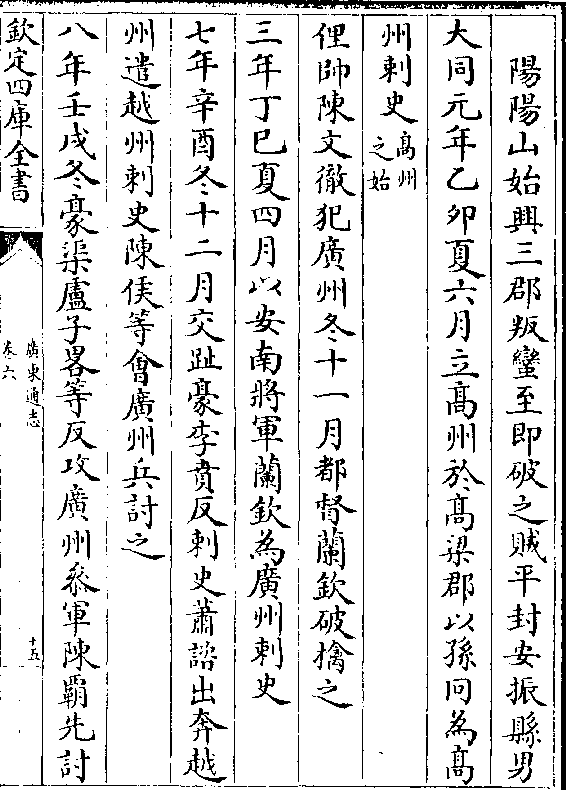 陽陽山始興三郡叛蠻至即破之賊平封安振縣男
大同元年乙卯夏六月立髙州於髙梁郡以孫冏為髙
州刺史髙州之始
俚帥陳文徹犯廣州冬十一月都督蘭欽破擒之
三年丁巳夏四月以安南將軍蘭欽為廣州刺史
七年辛酉冬十二月交趾豪李賁反刺史蕭諮出奔越
州遣越州刺史陳侯等會廣州兵討之
八年壬戌冬豪渠盧子畧等反攻廣州叅軍陳霸先討
欽定四庫全書
廣東通志
卷六
十五